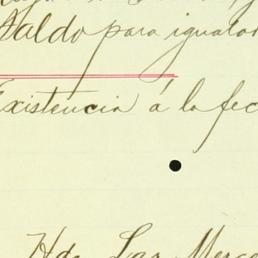 Saldo para igualar
Existencia á la fec
Hda Las Merce